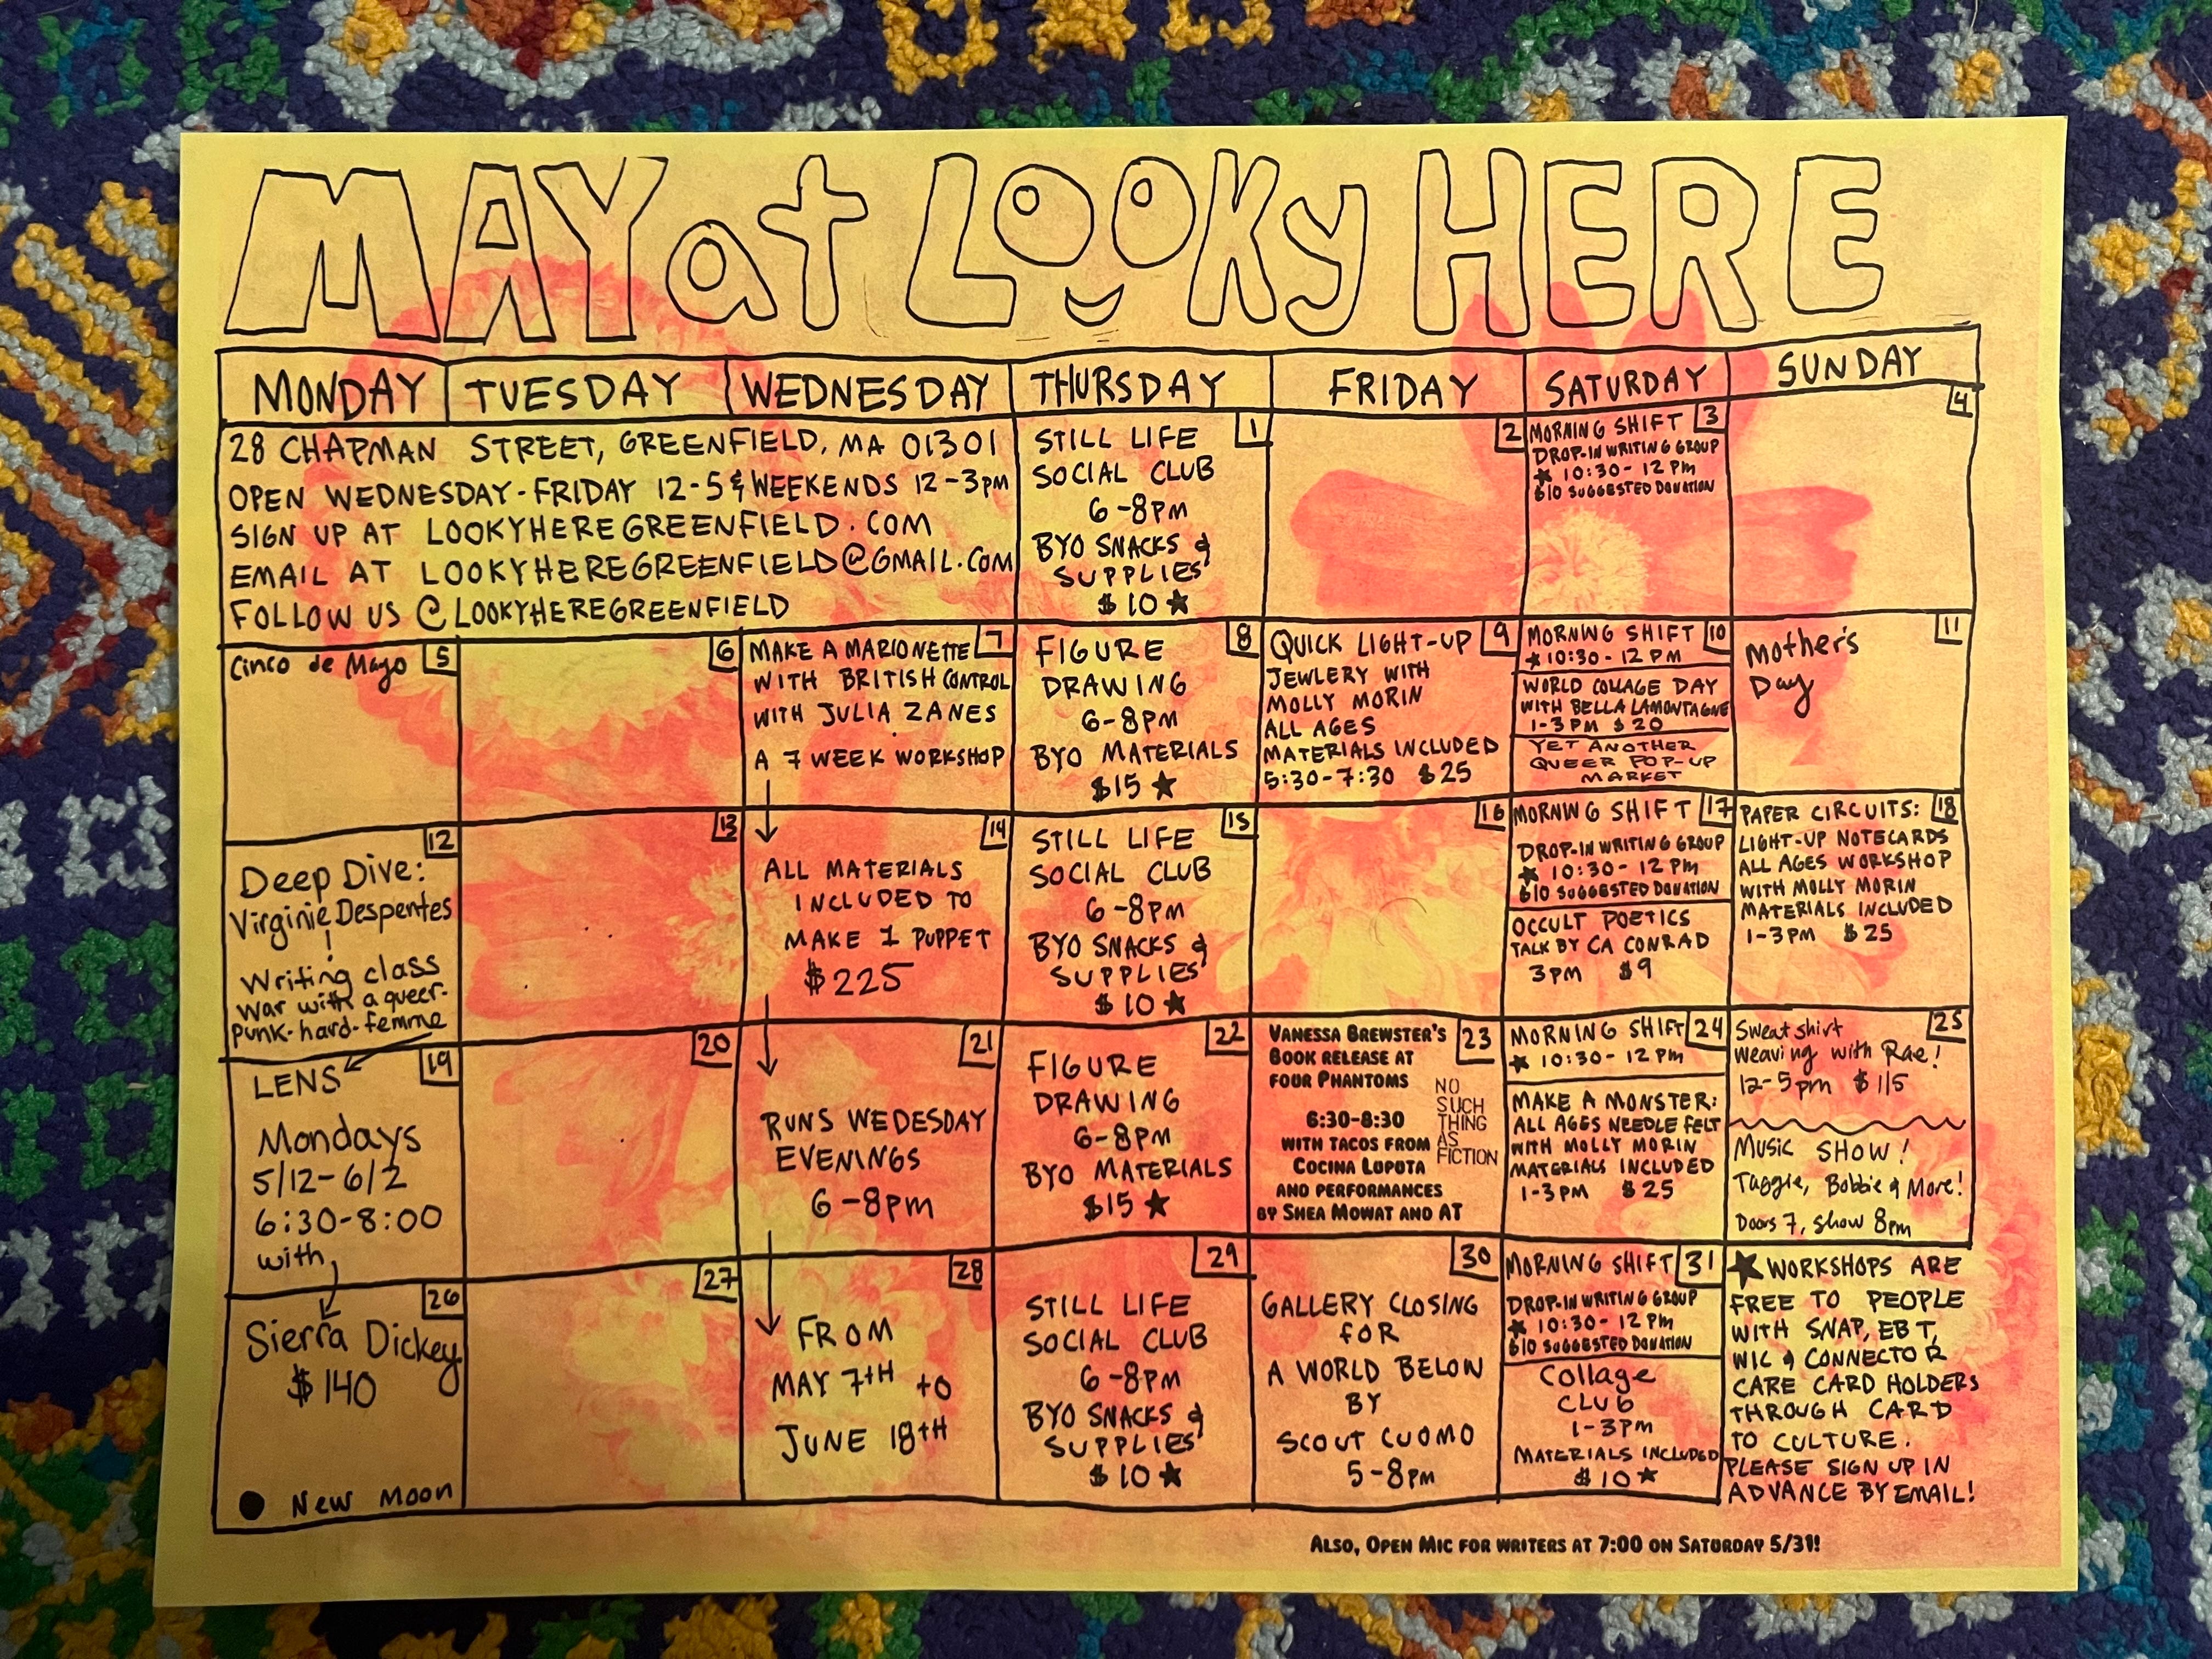 MAY at LOOKY HERE
MONDAY TUESDAY WEDNESDAY THURSDAY FRIDAY SATURDAY SUNDAY
28 CHAPMAN STREET, GREENFIELD, MA 01301
OPEN WEDNESDAY-FRIDAY 12-5 & WEEKENDS 12-3PM
SIGN UP AT LOOKYHEREGREENFIELD.COM
EMAIL AT LOOKYHEREGREENFIELD@GMAIL.COM
FOLLOW US @LOOKYHEREGREENFIELD
1
STILL LIFE
SOCIAL CLUB
6-8PM
BYO SNACKS &
SUPPLIES
$10 ★
2
MORNING SHIFT 3
DROP-IN WRITING GROUP
★ 10:30-12 PM
$10 SUGGESTED DONATION
4
Cinco de Mayo 5
6
MAKE A MARIONETTE 7
WITH BRITISH CONTROL
WITH JULIA ZANES
A 7 WEEK WORKSHOP
8
FIGURE
DRAWING
6-8PM
BYO MATERIALS
$15 ★
QUICK LIGHT-UP 9
JEWLERY WITH
MOLLY MORIN
ALL AGES
MATERIALS INCLUDED
5:30-7:30 $25
MORNING SHIFT 10
★ 10:30-12 PM
WORLD COLLAGE DAY
WITH BELLA LAMONTAGNE
1-3PM $20
YET ANOTHER
QUEER POP-UP
MARKET
11
Mother's
Day
12
Deep Dive:
Virginie Despentes
!
Writing class
War with a queer-
punk-hard-femme
13
14
ALL MATERIALS
INCLUDED TO
MAKE 1 PUPPET
$225
15
STILL LIFE
SOCIAL CLUB
6-8PM
BYO SNACKS &
SUPPLIES
$10 ★
16
MORNING SHIFT 17
DROP-IN WRITING GROUP
★ 10:30-12 PM
$10 SUGGESTED DONATION
OCCULT POETICS
TALK BY CA CONRAD
3PM $9
PAPER CIRCUITS: 18
LIGHT-UP NOTECARDS
ALL AGES WORKSHOP
WITH MOLLY MORIN
MATERIALS INCLUDED
1-3PM $25
19
LENS
Mondays
5/12-6/2
6:30-8:00
with
20
21
RUNS WEDESDAY
EVENINGS
6-8pm
22
FIGURE
DRAWING
6-8PM
BYO MATERIALS
$15 ★
VANESSA BREWSTER'S 23
BOOK RELEASE AT
FOUR PHANTOMS
NO
SUCH
THING
AS
FICTION
6:30-8:30
WITH TACOS FROM
COCINA LUPOTA
AND PERFORMANCES
BY SHEA MOWAT AND AT
MORNING SHIFT 24
★ 10:30-12 PM
MAKE A MONSTER:
ALL AGES NEEDLE FELT
WITH MOLLY MORIN
MATERIALS INCLUDED
1-3PM $25
25
Sweatshirt
Weaving with Rae!
12-5pm $115
MUSIC SHOW!
Taggie, Bobbie & More!
Doors 7, Show 8pm
26
Sierra Dickey
$140
● New Moon
27
28
FROM
MAY 7TH to
JUNE 18TH
29
STILL LIFE
SOCIAL CLUB
6-8PM
BYO SNACKS &
SUPPLIES
$10 ★
30
GALLERY CLOSING
FOR
A WORLD BELOW
BY
SCOUT CUOMO
5-8pm
MORNING SHIFT 31
DROP-IN WRITING GROUP
★ 10:30-12 PM
$10 SUGGESTED DONATION
Collage
CLUB
1-3pm
MATERIALS INCLUDED
$10 ★
★ WORKSHOPS ARE
FREE TO PEOPLE
WITH SNAP, EBT,
WIC & CONNECTOR
CARE CARD HOLDERS
THROUGH CARD
TO CULTURE.
PLEASE SIGN UP IN
ADVANCE BY EMAIL!
ALSO, OPEN MIC FOR WRITERS AT 7:00 ON SATURDAY 5/31!